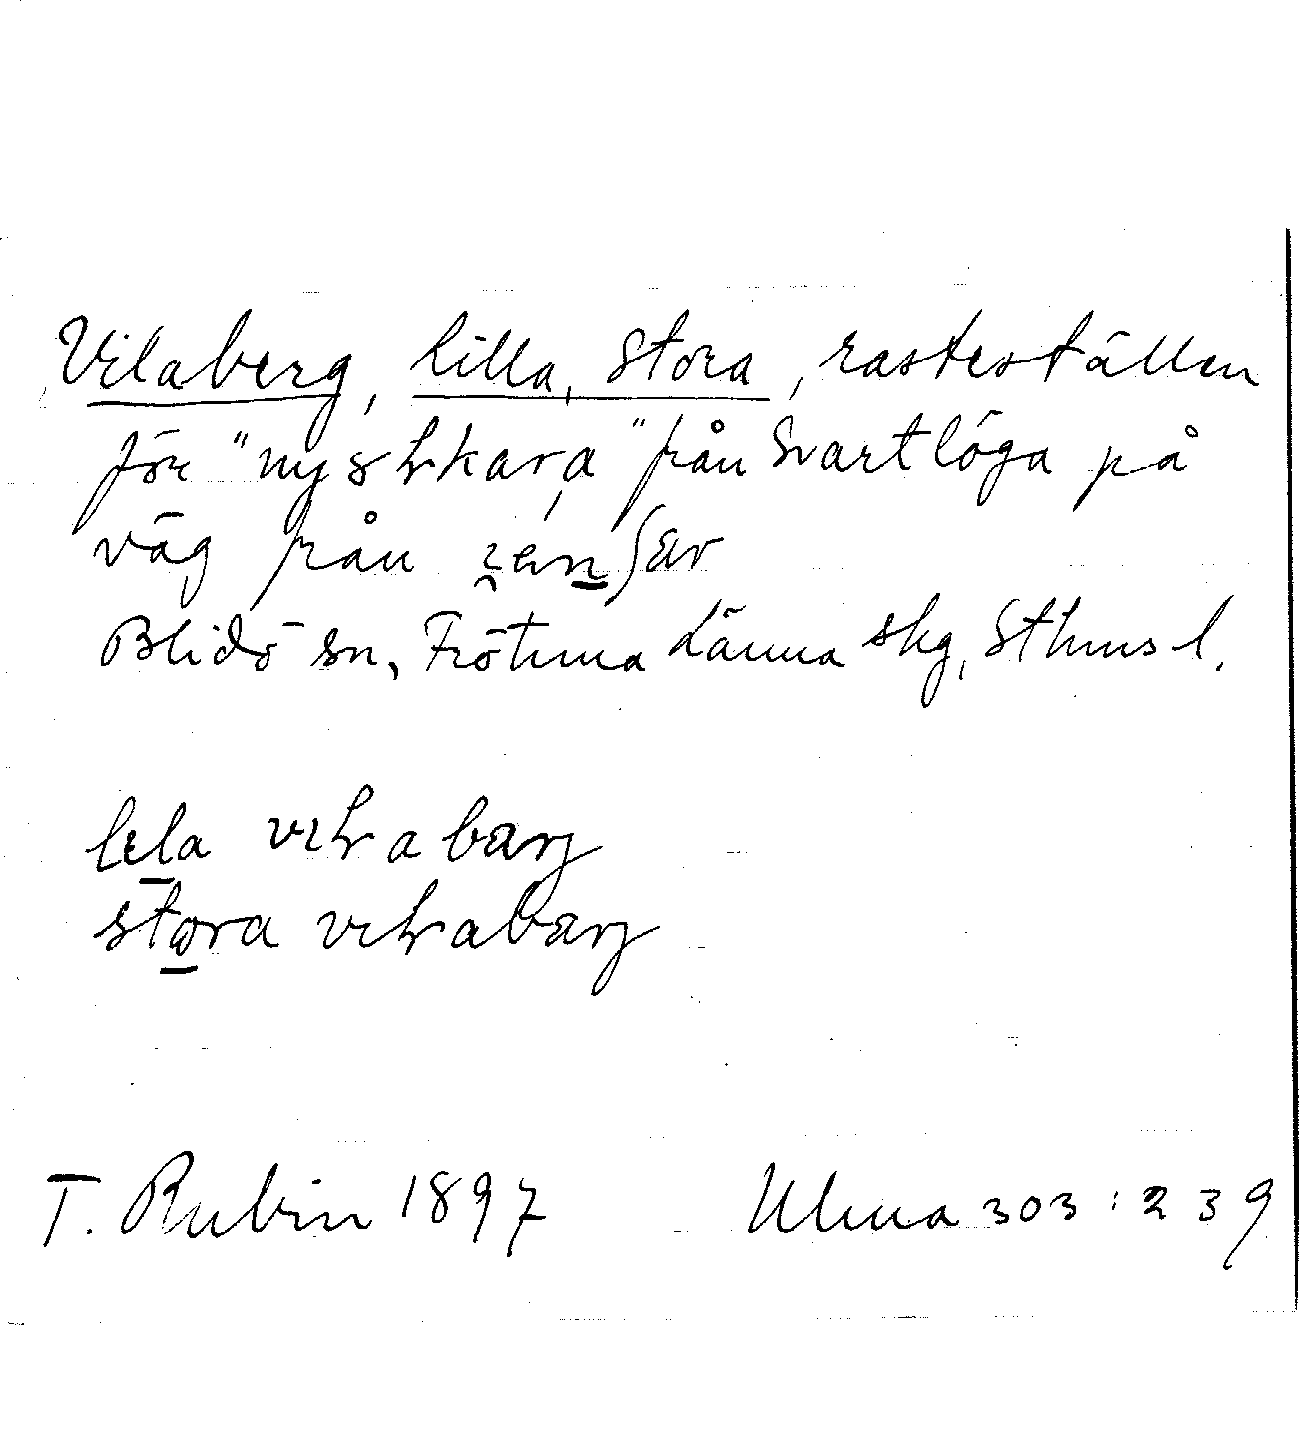 Vilaberg, Lilla, Stora, rasteställen
för "nyshkara" från Svartlöga på
väg från
Blidö sn, Frötuna Länna skg, Sthms l.
lɩla vɩƚabærj
stora vɩƚabærj
T. Rubin 1897 Ulma 303:239